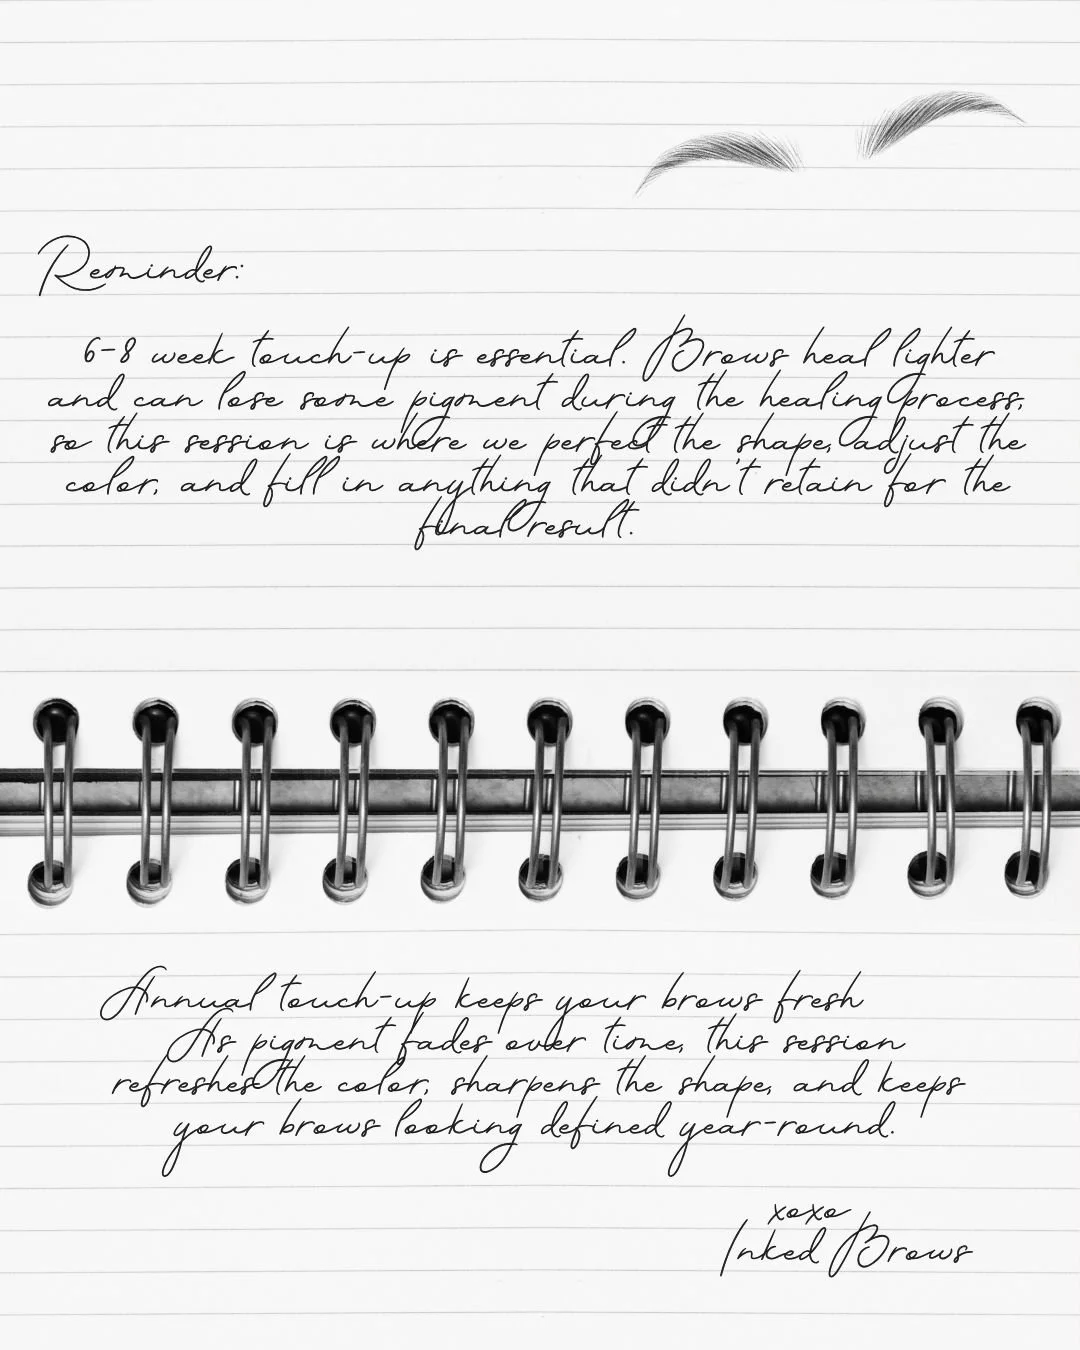 Reminder:
6-8 week touch-up is essential. Brows heal lighter
and can lose some pigment during the healing process,
so this session is where we perfect the shape, adjust the
color, and fill in anything that didn't retain for the
final result.
Annual touch-up keeps your brows fresh
As pigment fades over time, this session
refreshes the color, sharpens the shape, and keeps
your brows looking defined year-round.
xoxo
Inked Brows